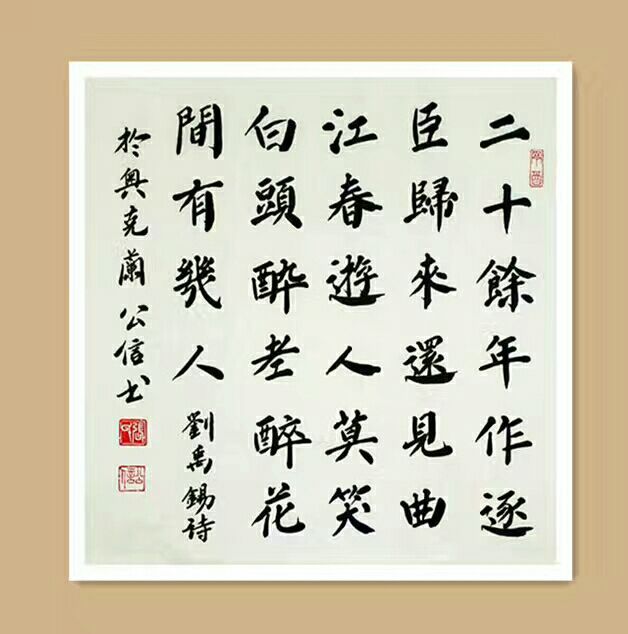 二十餘年作逐
臣歸來還見曲
江春遊人莫笑
白頭酔老醉花
間有幾人
劉禹錫詩
於奧克蘭公信书